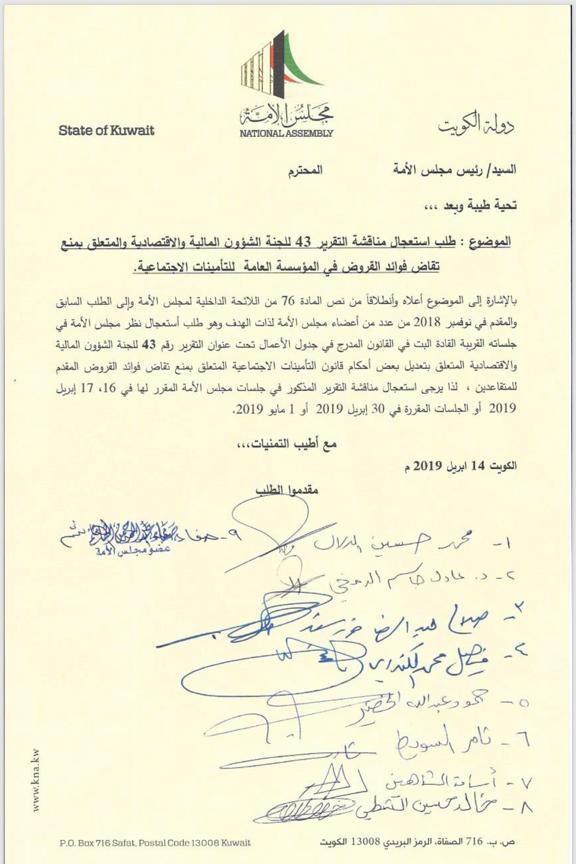 مجلس الأمة
NATIONAL ASSEMBLY
State of Kuwait
دولة الكويت
السيد/ رئيس مجلس الأمة المحترم
تحية طيبة وبعد ،،،
الموضوع : طلب استعجال مناقشة التقرير 43 للجنة الشؤون المالية والاقتصادية والمتعلق بمنع
تقاض فوائد القروض في المؤسسة العامة للتأمينات الاجتماعية.
بالإشارة إلى الموضوع أعلاه وأنطلاقاً من نص المادة 76 من اللائحة الداخلية لمجلس الأمة وإلى الطلب السابق
والمقدم في نوفمبر 2018 من عدد من أعضاء مجلس الأمة لذات الهدف وهو طلب أستعجال نظر مجلس الأمة في
جلساته القريبة القادة البت في القانون المدرج في جدول الأعمال تحت عنوان التقرير رقم 43 للجنة الشؤون المالية
والاقتصادية المتعلق بتعديل بعض أحكام قانون التأمينات الاجتماعية المتعلق بمنع تقاض فوائد القروض المقدم
للمتقاعدين ، لذا يرجى استعجال مناقشة التقرير المذكور في جلسات مجلس الأمة المقرر لها في 16، 17 إبريل
2019 أو الجلسات المقررة في 30 إبريل 2019 أو 1 مايو 2019.
مع أطيب التمنيات،،،
الكويت 14 ابريل 2019 م
مقدموا الطلب
١- محمد حسين الدلال
٢- د. عادل جاسم الدمخي
٣- صلاح عبدالرضا خورشيد
٤- فيصل محمد الكندري
٥- حمود عبدالله الخضير
٦- ثامر السويط
٧- أسامة الشاهين
٨- خالد حسين الشطي
٩- صفاء
عضو مجلس الأمة
www.kna.kw
P.O. Box 716 Safat, Postal Code 13008 Kuwait
ص. ب. 716 الصفاة، الرمز البريدي 13008 الكويت